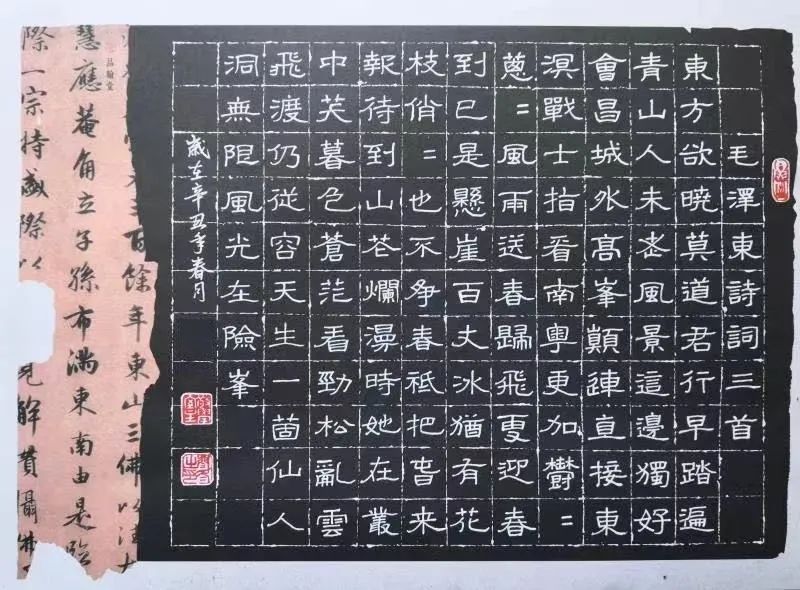 毛澤東詩詞三首
東方欲曉莫道君行早踏遍
青山人未老風景這邊獨好
會昌城外高峯顛連直接東
溟戰士指看南粵更加鬱〻
蔥〻風雨送春歸飛雪迎春
到已是懸崖百丈冰猶有花
枝俏〻也不爭春祇把春來
報待到山花爛漫時她在叢
中笑暮色蒼茫看勁松亂雲
飛渡仍從容天生一箇仙人
洞無限風光在險峯
歲在辛丑年春月
百餘年東山三佛以法
品翰堂
慧應菴角立子孫布滿東南由是臨
際一宗特盛際以見解貫攝佛